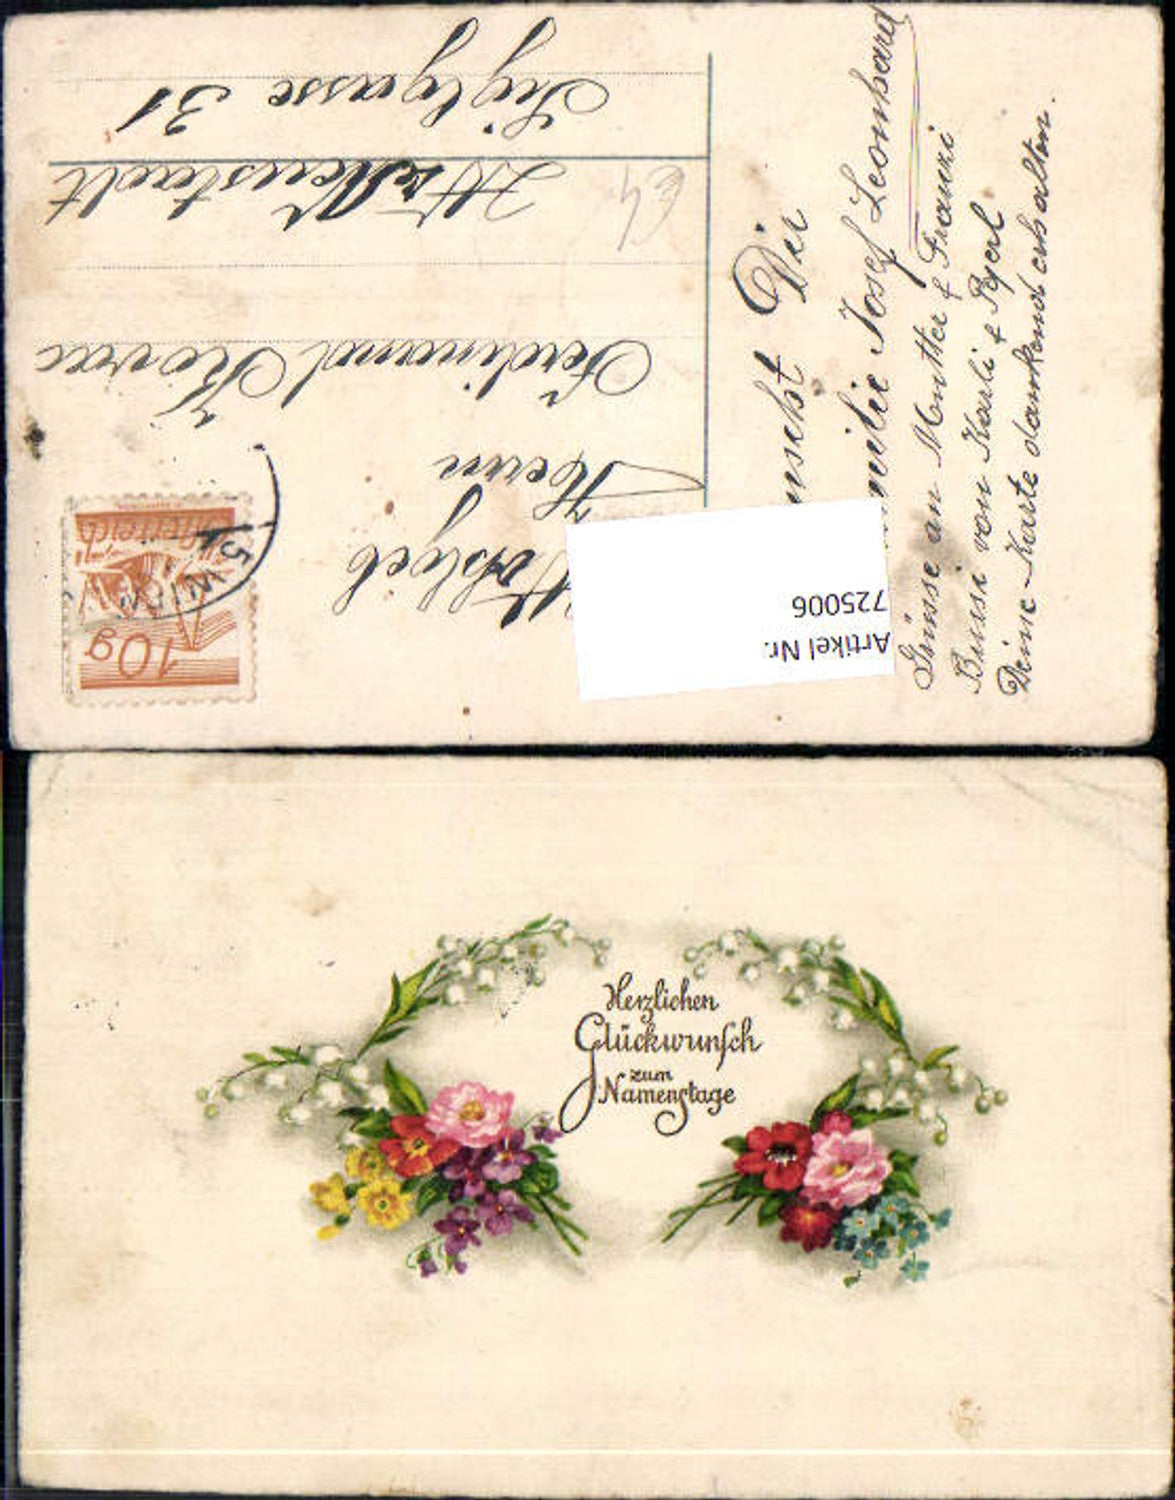 Österreich
10g
5 WIEN
Wohlgeb
Herrn
Ferdinand Kovac
Wr. Neustadt
Siglgasse 31
E4
Dir
Josef Leonhard
Grüsse an Mutter & Franzi
Bussi von Karli &
Deine Karte dankend erhalten.
Artikel Nr.
725006
Herzlichen
Glückwunsch
zum
Namenstage